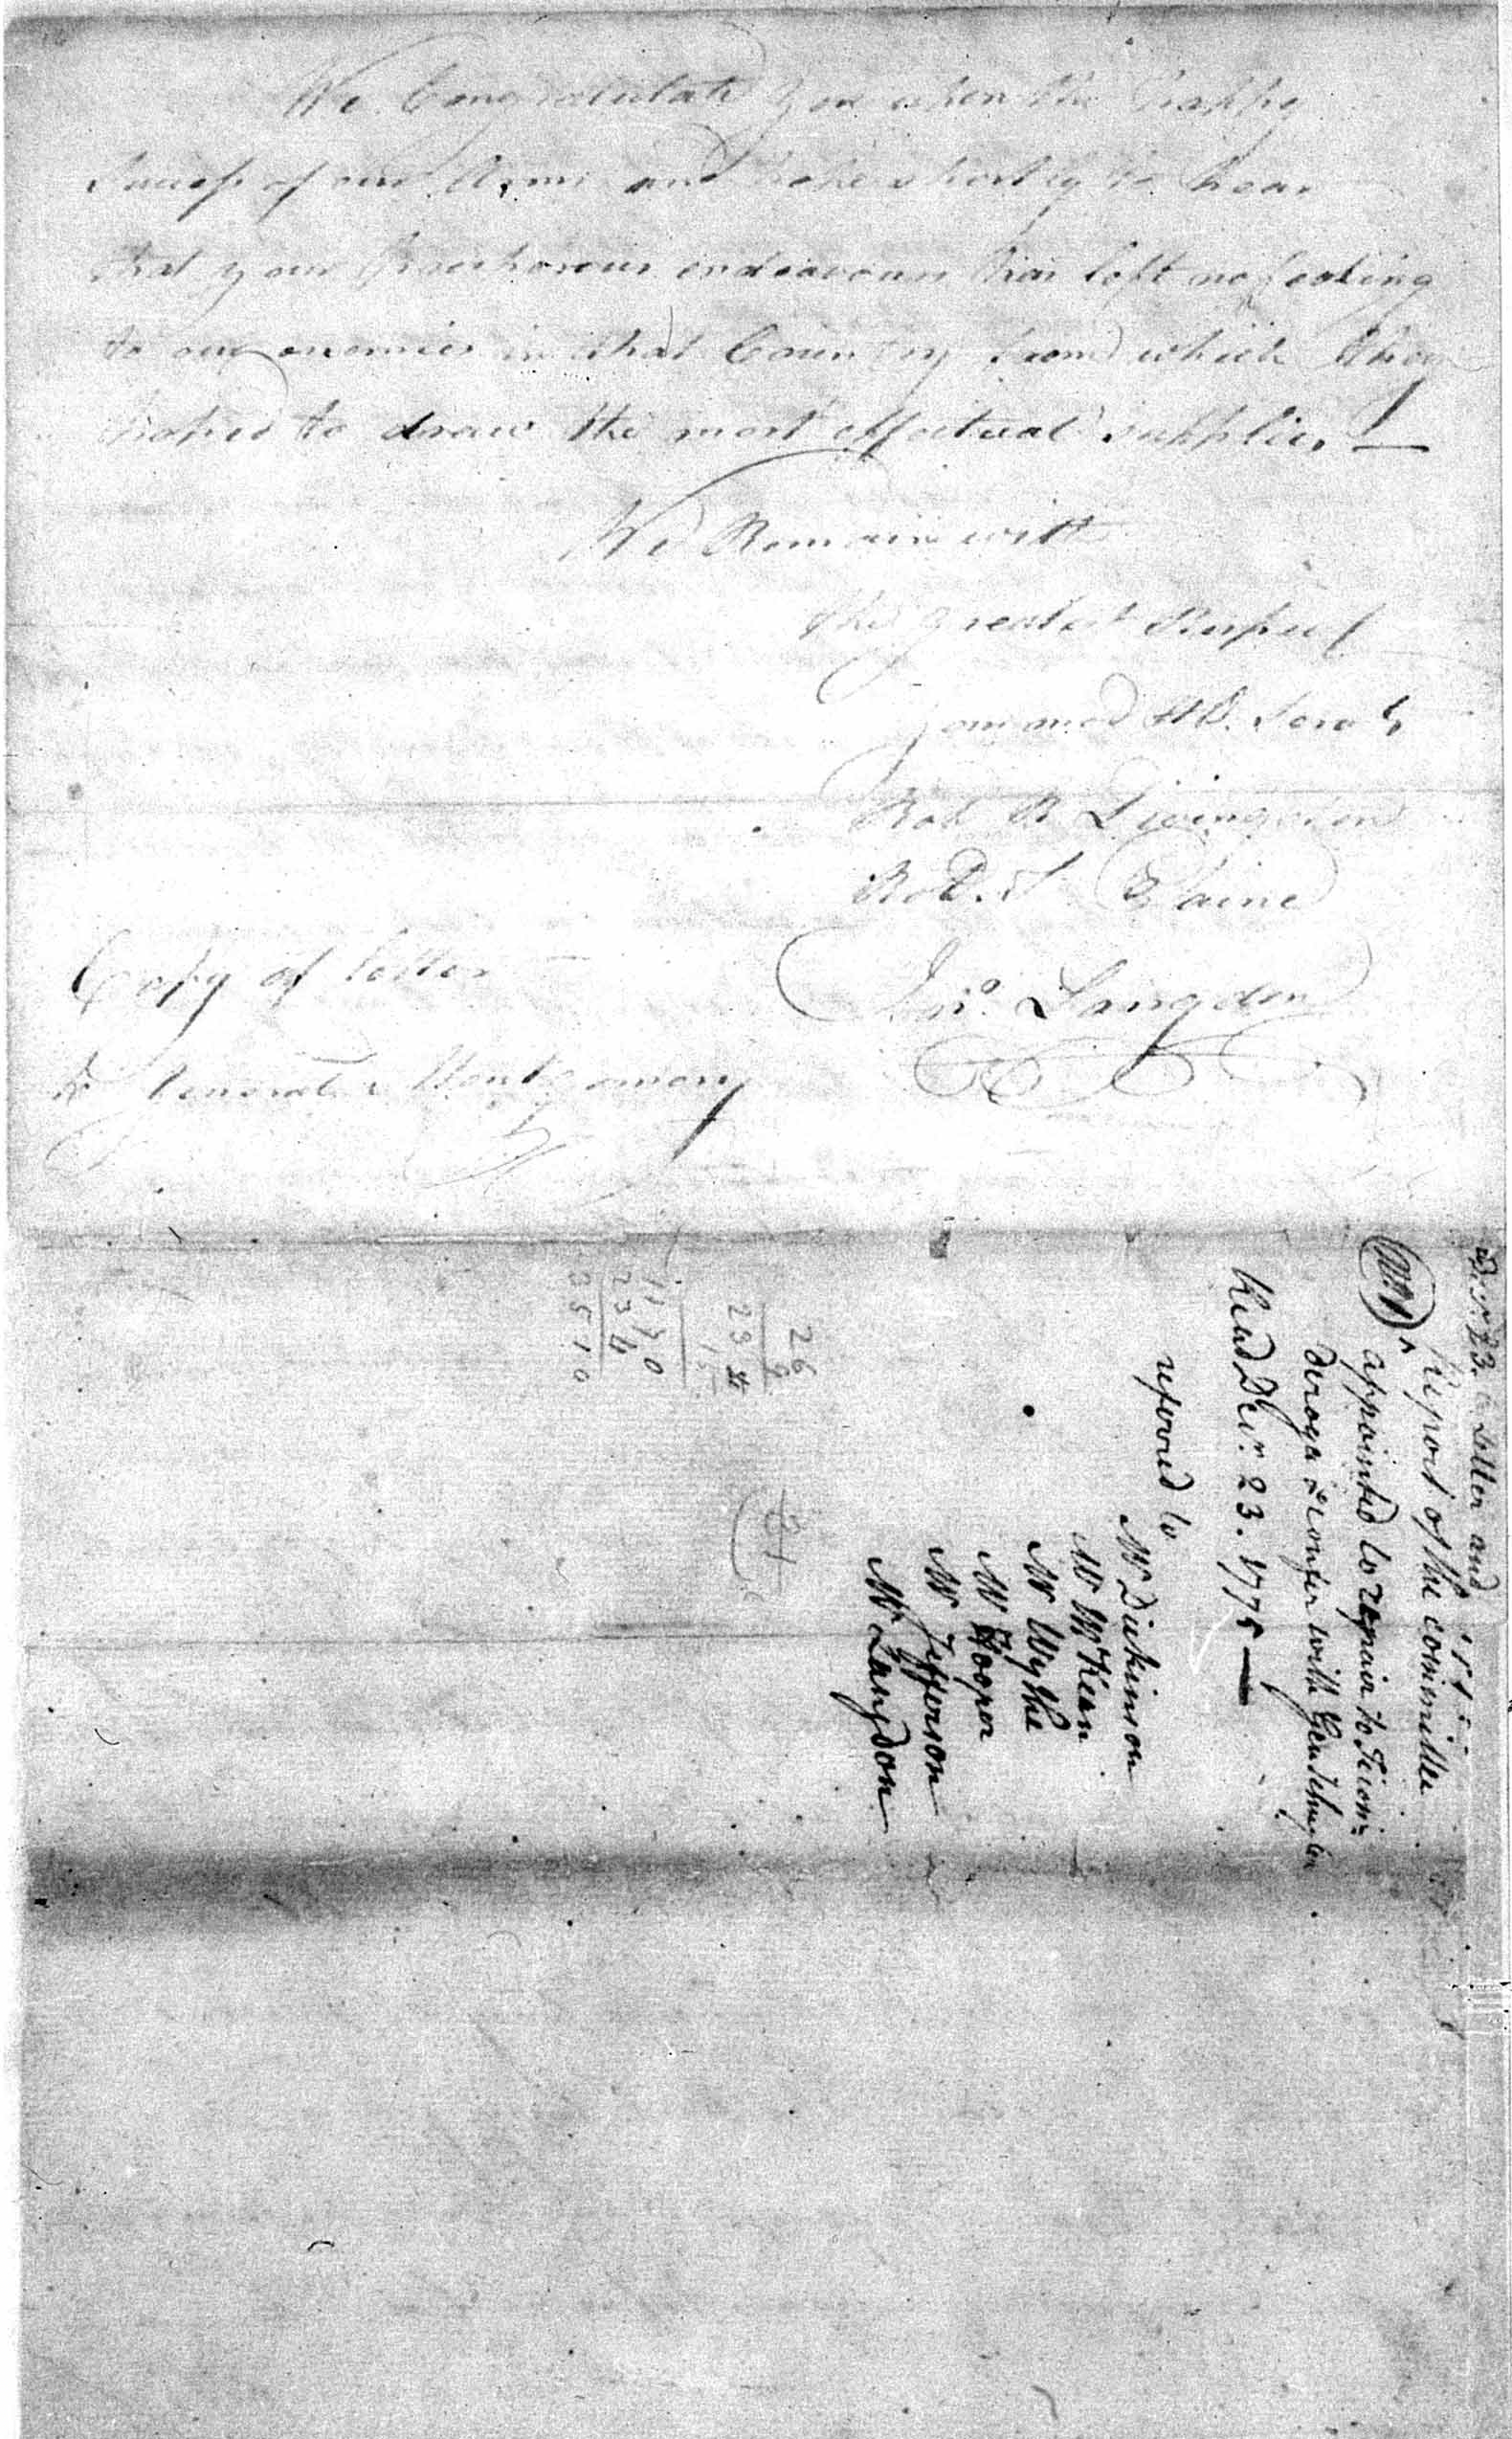 We Congratulate you upon the happy
Success of our Arms and hope shortly to hear
that your endeavours has left no footing
to our enemies in that Country from which they
hoped to draw the most effectual supplies
We Remain with
the greatest Respect
Your most Hb. Servts
Rob R Livingston
Rob. T. Paine
Jno. Langdon
Copy of letter
to General Montgomery
26
9
234
15
1170
234
3510
Decr. 23. a Letter and
No 1
Report of the committee
appointed to repair to Ticon=
deroga to confer with Genl Schuyler
Read Decr. 23. 1775 —
referred to
Mr Dickinson
Mr McKean
Mr Wythe
Mr Hooper
Mr Jefferson
Mr Langdon